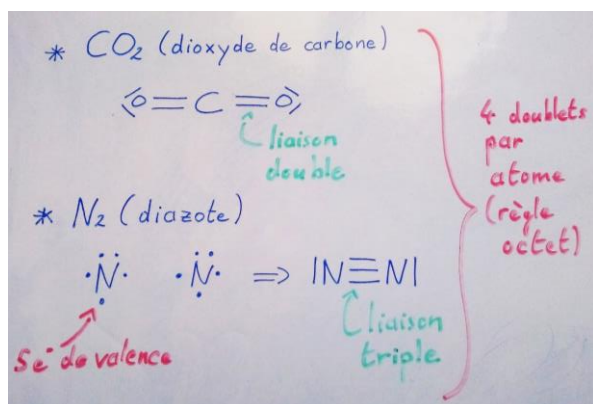 * CO₂ (dioxyde de carbone)
O=C=O
liaison
double
* N₂ (diazote)
·N· ·N· ⇒ |N≡N|
5e⁻ de valence
liaison
triple
4 doublets
par
atome
(règle
octet)